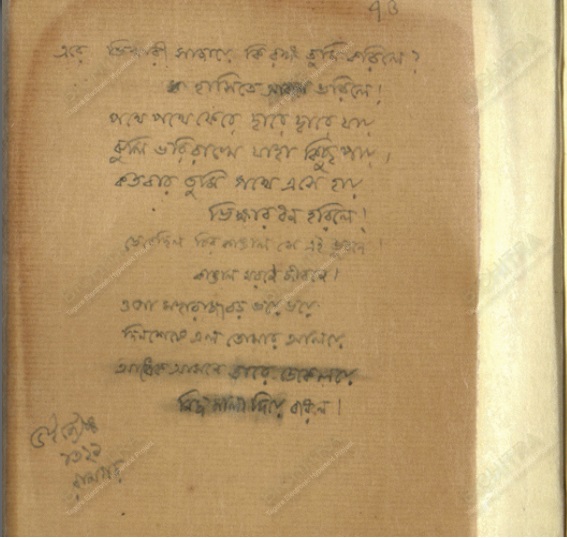 93
এরে ভিখারী সাজায়ে কি রঙ্গ তুমি করিলে?
হাসিতে আকাশ ভরিলে!
পথে পথে ফেরে দ্বারে দ্বারে যায়
ঝুলি ভরি রাখে যাহা কিছু পায়,
কতবার তুমি পথে এসে হায়
ভিক্ষার ধন হরিলে!
ভেবেছিল চির কাঙাল সে এই ভুবনে!
কাঙাল মরণে জীবনে!
ওগো মহারাজা বড় ভয়ে ভয়ে
দিনশেষে এল তোমার আলয়ে
আধেক আসনে তারে ডেকে লয়ে
নিজ মালা দিয়ে বরিলে!